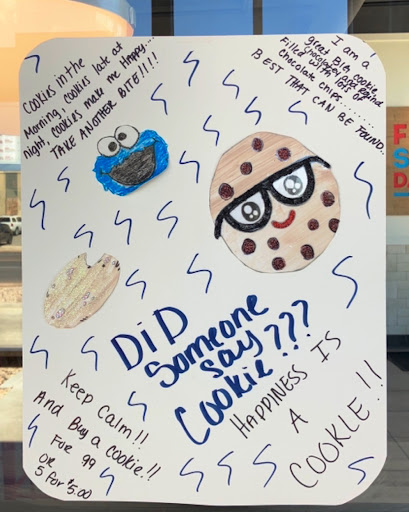 Cookies in the
Morning, cookies late at
Night, cookies make me Happy...
TAKE ANOTHER BITE!!!!
I am a
great Big cookie,
Filled with
Chocolate chips.........
BEST THAT CAN BE FOUND..
DiD
Someone
Say
Cookie???
HAPPINESS IS
A
COOKIE!!
Keep Calm!!
And Buy a cookie!!
For 99
OR
5 for $5.00